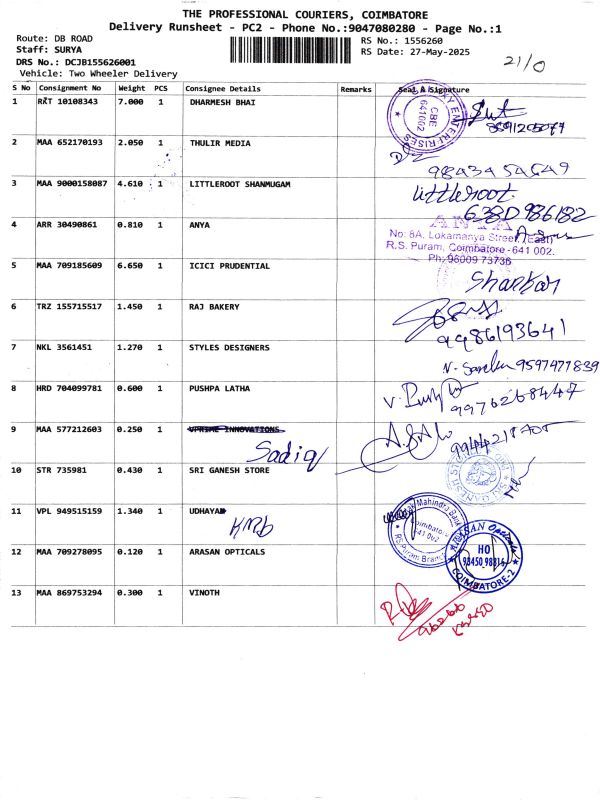 THE PROFESSIONAL COURIERS, COIMBATORE
Delivery Runsheet - PC2 - Phone No.:9047080280 - Page No.:1
Route: DB ROAD
RS No.: 1556260
Staff: SURYA
RS Date: 27-May-2025
21/0
DRS No.: DCJB155626001
Vehicle: Two Wheeler Delivery
S No Consignment No Weight PCS Consignee Details Remarks Seal & Signature
1 RKT 10108343 7.000 1 DHARMESH BHAI
ENTERPRISES CBE 641002
2 MAA 652170193 2.050 1 THULIR MEDIA
3 MAA 9000158087 4.610 1 LITTLEROOT SHANMUGAM littleroot.
6380986182
4 ARR 30490861 0.810 1 ANYA ANYA
No: 8A, Lokamanya Street (East)
R.S. Puram, Coimbatore - 641 002.
Ph: 96009 73736
5 MAA 709185609 6.650 1 ICICI PRUDENTIAL Shankar
6 TRZ 155715517 1.450 1 RAJ BAKERY
9986193641
7 NKL 3561451 1.270 1 STYLES DESIGNERS 9597477839
8 HRD 704099781 0.600 1 PUSHPA LATHA V. Pushpa
9976268447
9 MAA 577212603 0.250 1 VPRIME INNOVATIONS
Sadiq
10 STR 735981 0.430 1 SRI GANESH STORE
11 VPL 949515159 1.340 1 UDHAYA
KMB
Mahindra Bank Coimbatore 641 002 R.S. Puram Branch
12 MAA 709278095 0.120 1 ARASAN OPTICALS
ARASAN Opticals HO COIMBATORE-2
13 MAA 869753294 0.300 1 VINOTH